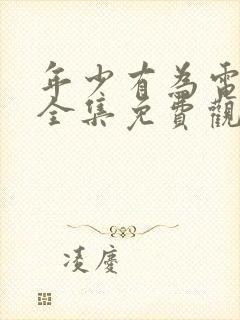 年少有為電
全集免費觀
凌慶